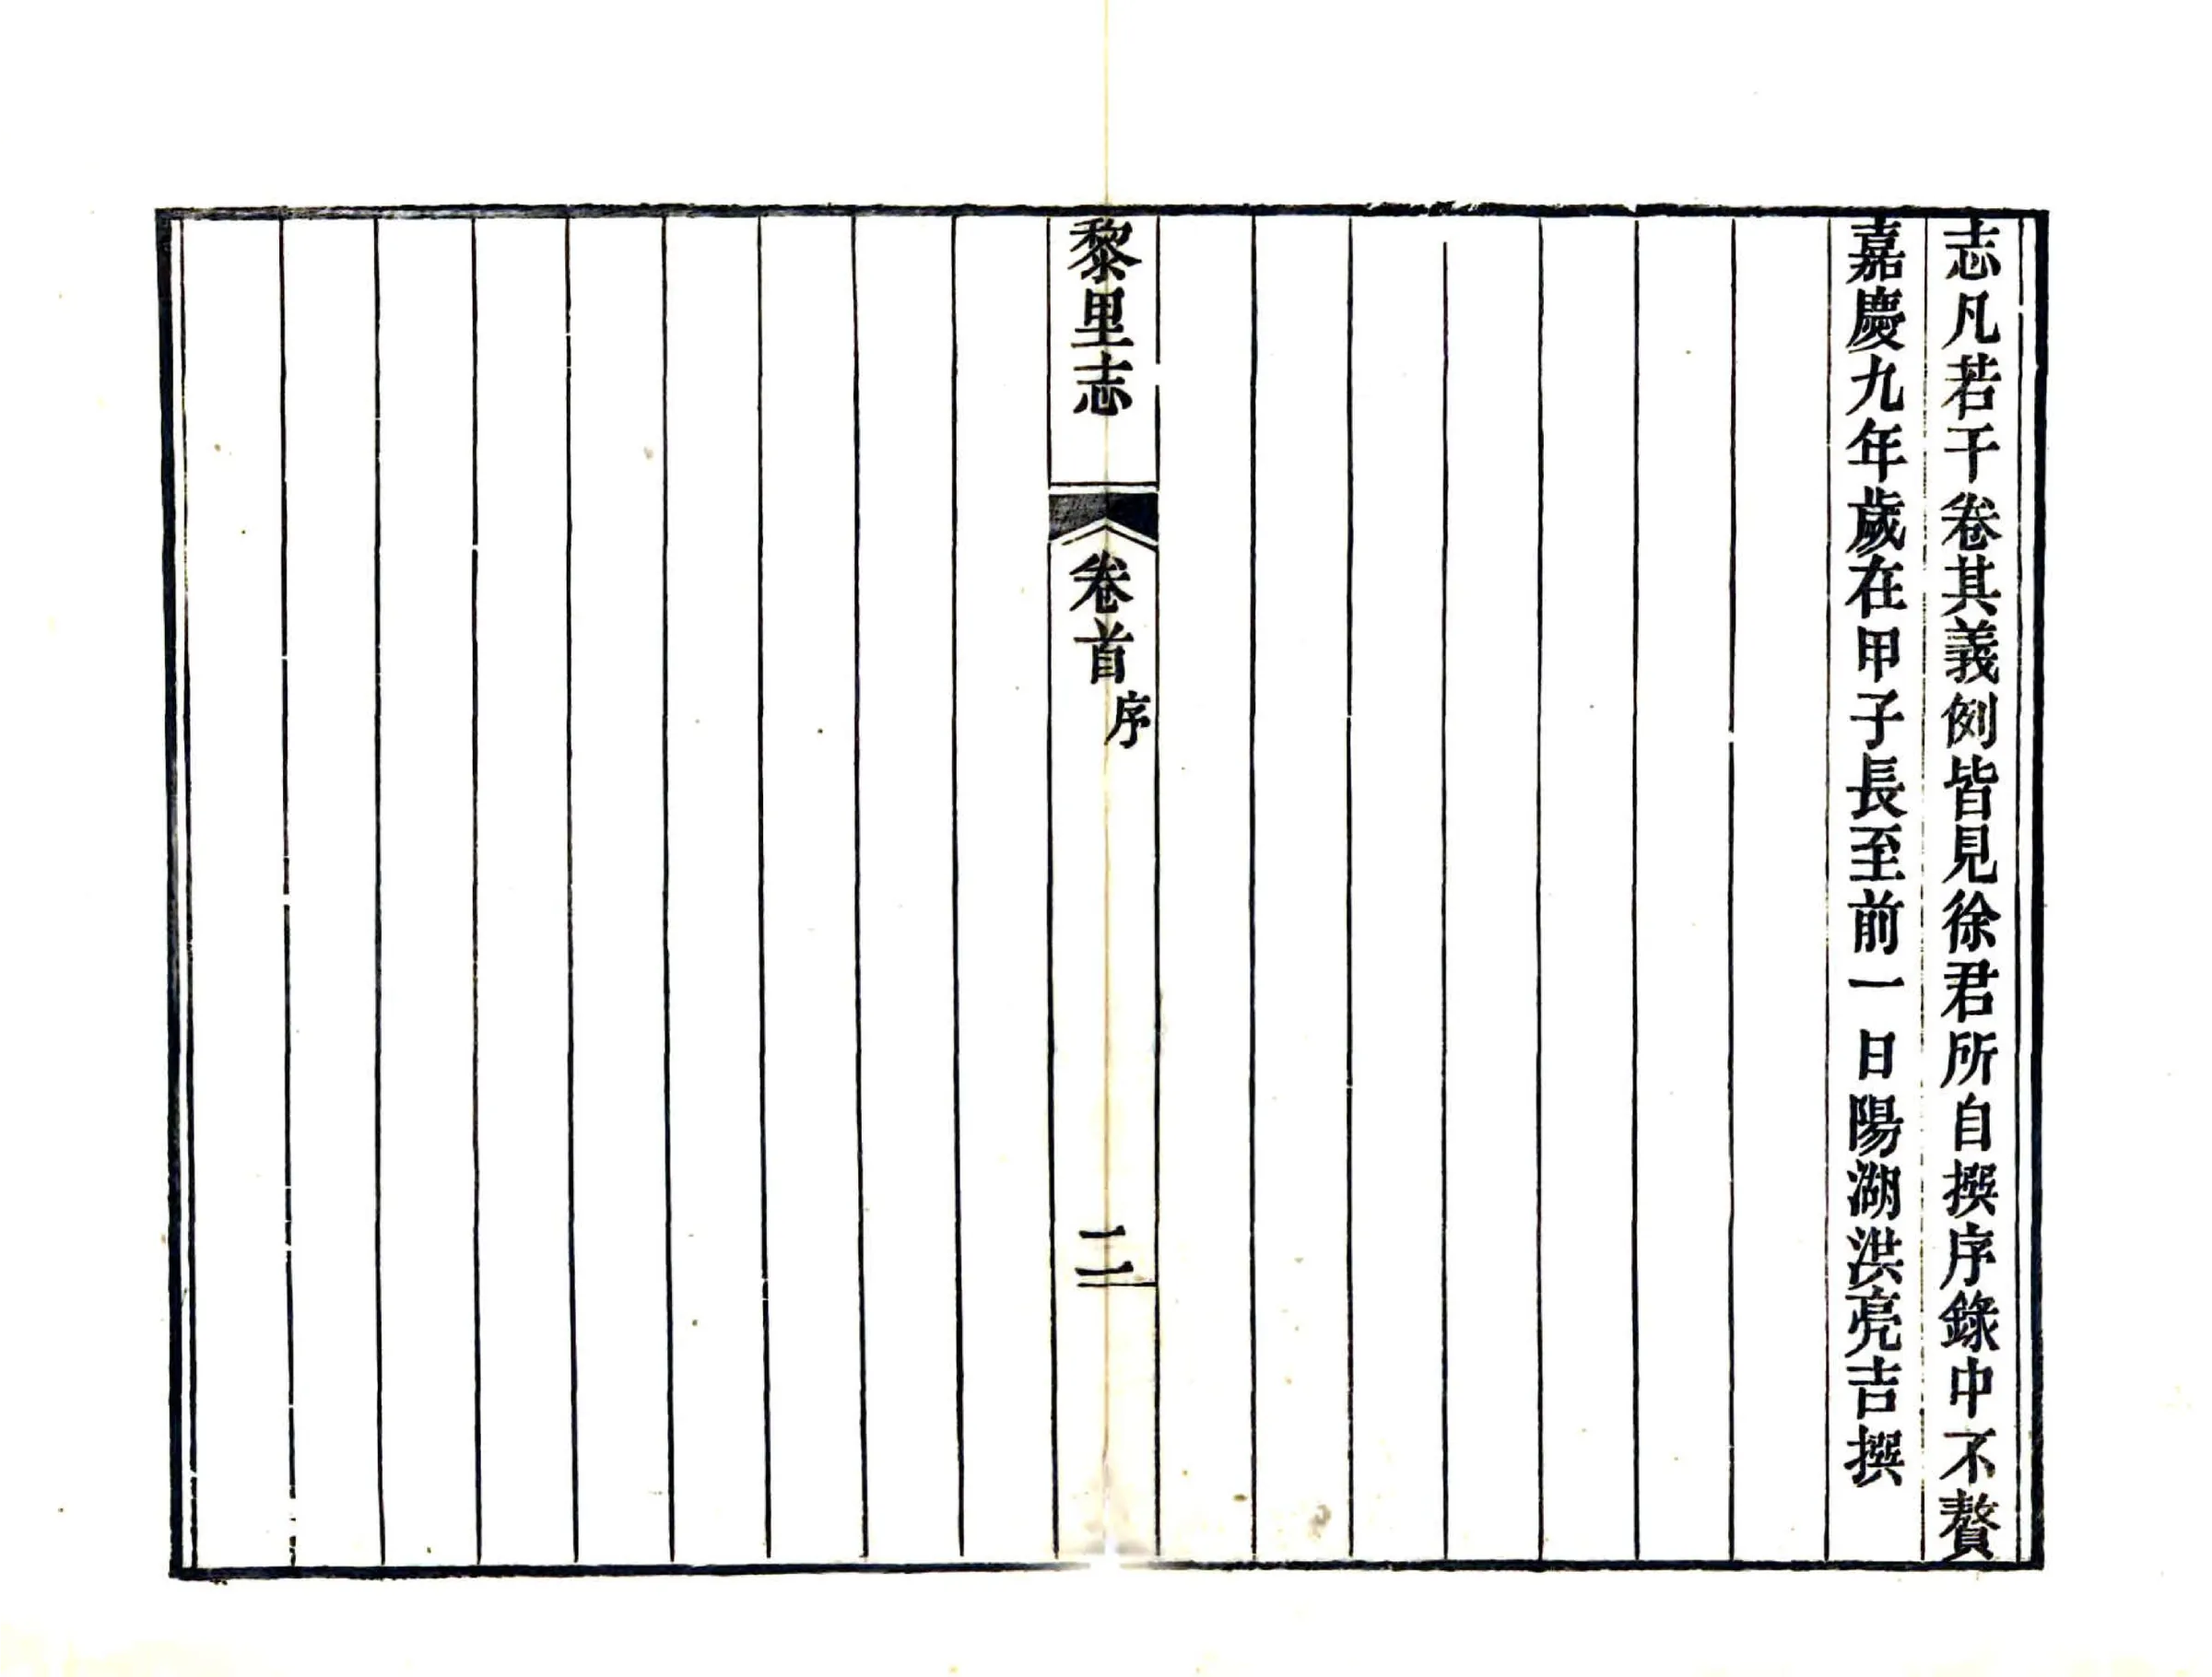 志凡若干卷其義例皆見徐君所自撰序錄中不贅
嘉慶九年歲在甲子長至前一日陽湖洪亮吉撰
黎里志
卷首
序
二